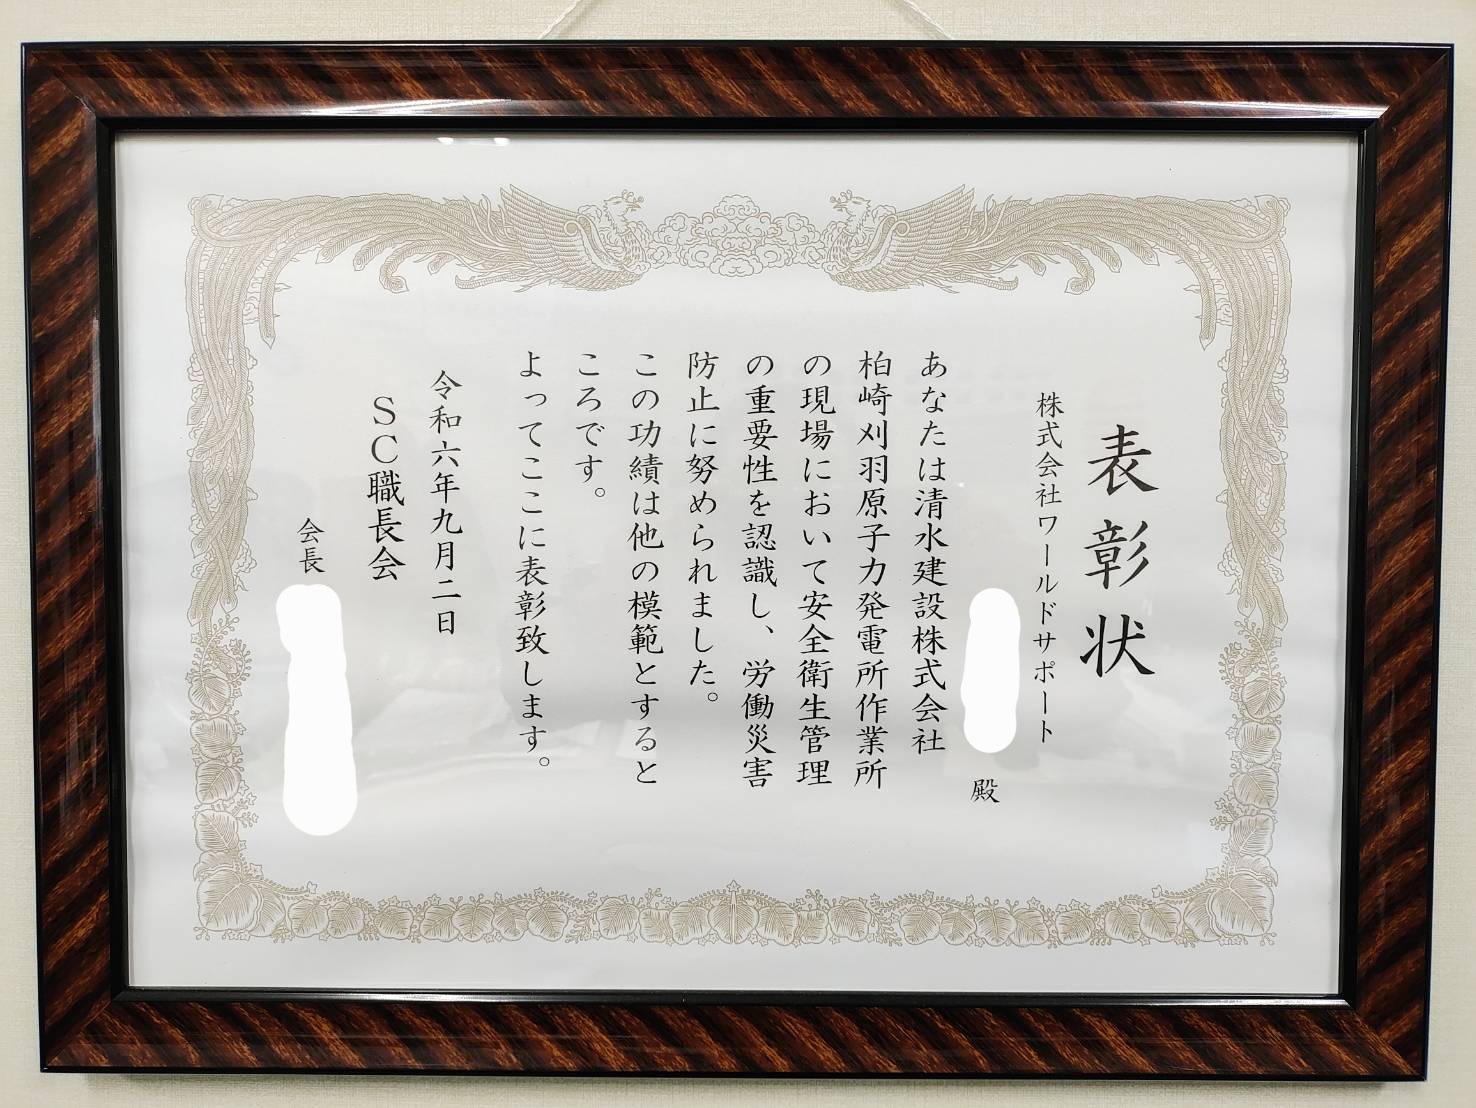 表彰状
株式会社ワールドサポート
殿
あなたは清水建設株式会社
柏崎刈羽原子力発電所作業所
の現場において安全衛生管理
の重要性を認識し、労働災害
防止に努められました。
この功績は他の模範とすると
ころです。
よってここに表彰致します。
令和六年九月二日
ＳＣ職長会
会長